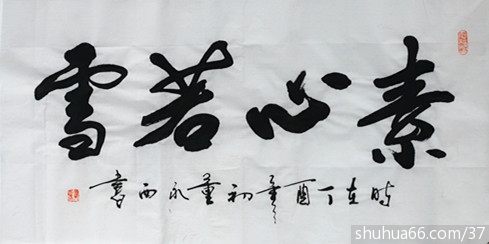 素心若雪
时在丁酉夏初董永西書
shuhua66.com/37